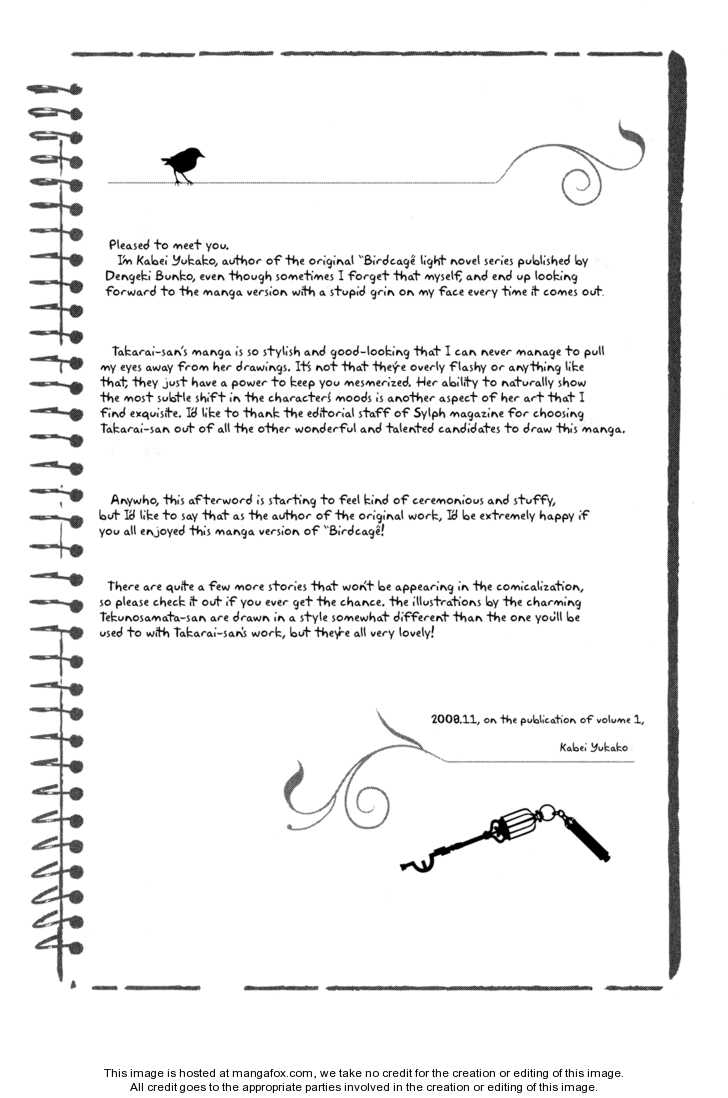 Pleased to meet you.
I'm Kabei Yukako, author of the original "Birdcage" light novel series published by
Dengeki Bunko, even though sometimes I forget that myself, and end up looking
forward to the manga version with a stupid grin on my face every time it comes out.
Takarai-san's manga is so stylish and good-looking that I can never manage to pull
my eyes away from her drawings. It's not that they're overly flashy or anything like
that, they just have a power to keep you mesmerized. Her ability to naturally show
the most subtle shift in the character's moods is another aspect of her art that I
find exquisite. I'd like to thank the editorial staff of Sylph magazine for choosing
Takarai-san out of all the other wonderful and talented candidates to draw this manga.
Anywho, this afterword is starting to feel kind of ceremonious and stuffy,
but I'd like to say that as the author of the original work, I'd be extremely happy if
you all enjoyed this manga version of "Birdcage"!
There are quite a few more stories that won't be appearing in the comicalization,
so please check it out if you ever get the chance. the illustrations by the charming
Tekunosamata-san are drawn in a style somewhat different than the one you'll be
used to with Takarai-san's work, but they're all very lovely!
2008.11, on the publication of volume 1,
Kabei Yukako
This image is hosted at mangafox.com, we take no credit for the creation or editing of this image.
All credit goes to the appropriate parties involved in the creation or editing of this image.